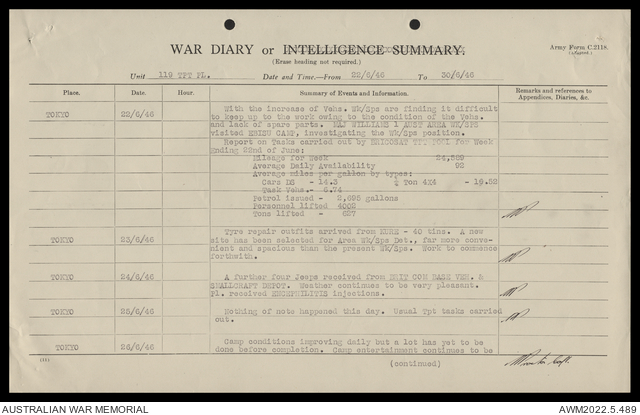 WAR DIARY or INTELLIGENCE SUMMARY.
(Erase heading not required.)
Army Form C.2118.
Unit 119 TPT PL. Date and Time—From 22/6/46 To 30/6/46
Place. Date. Hour. Summary of Events and Information. Remarks and references to Appendices, Diaries, &c.
TOKYO 22/6/46 With the increase of Vehs. Wk/Sps are finding it difficult
to keep up to the work owing to the condition of the Vehs.
and lack of spare parts. MAJ WILLIAMS 1 AUST ARMA WK/SPS
visited EBISU CAMP, investigating the Wk/Sps position.
Report on Tasks carried out by TPT. for Week
Ending 22nd of June:
Mileage for Week 24,589
Average Daily Availability 92
Average miles per gallon by types:
Cars D5 - 14.3 ¼ Ton 4X4 - 19.52
Task Vehs.- 6.74
Petrol issued - 3,695 gallons
Personnel lifted 4002
Tons lifted - 627
Tyre repair outfits arrived from KURE - 40 tins. A new
TOKYO 23/6/46 site has been selected for Area Wk/Sps Det., far more conve-
nient and spacious than the present Wk/Sps. Work to commence
forthwith.
TOKYO 24/6/46 A further four Jeeps received from BRIT COM BASE VEH. &
SMALLCRAFT DEPOT. Weather continues to be very pleasant.
Pl. received ENCEPHILITIS injections.
TOKYO 25/6/46 Nothing of note happened this day. Usual Tpt tasks carried
out.
TOKYO 26/6/46 Camp conditions improving daily but a lot has yet to be
done before completion. Camp entertainment continues to be
(continued)
AUSTRALIAN WAR MEMORIAL AWM2022.5.489